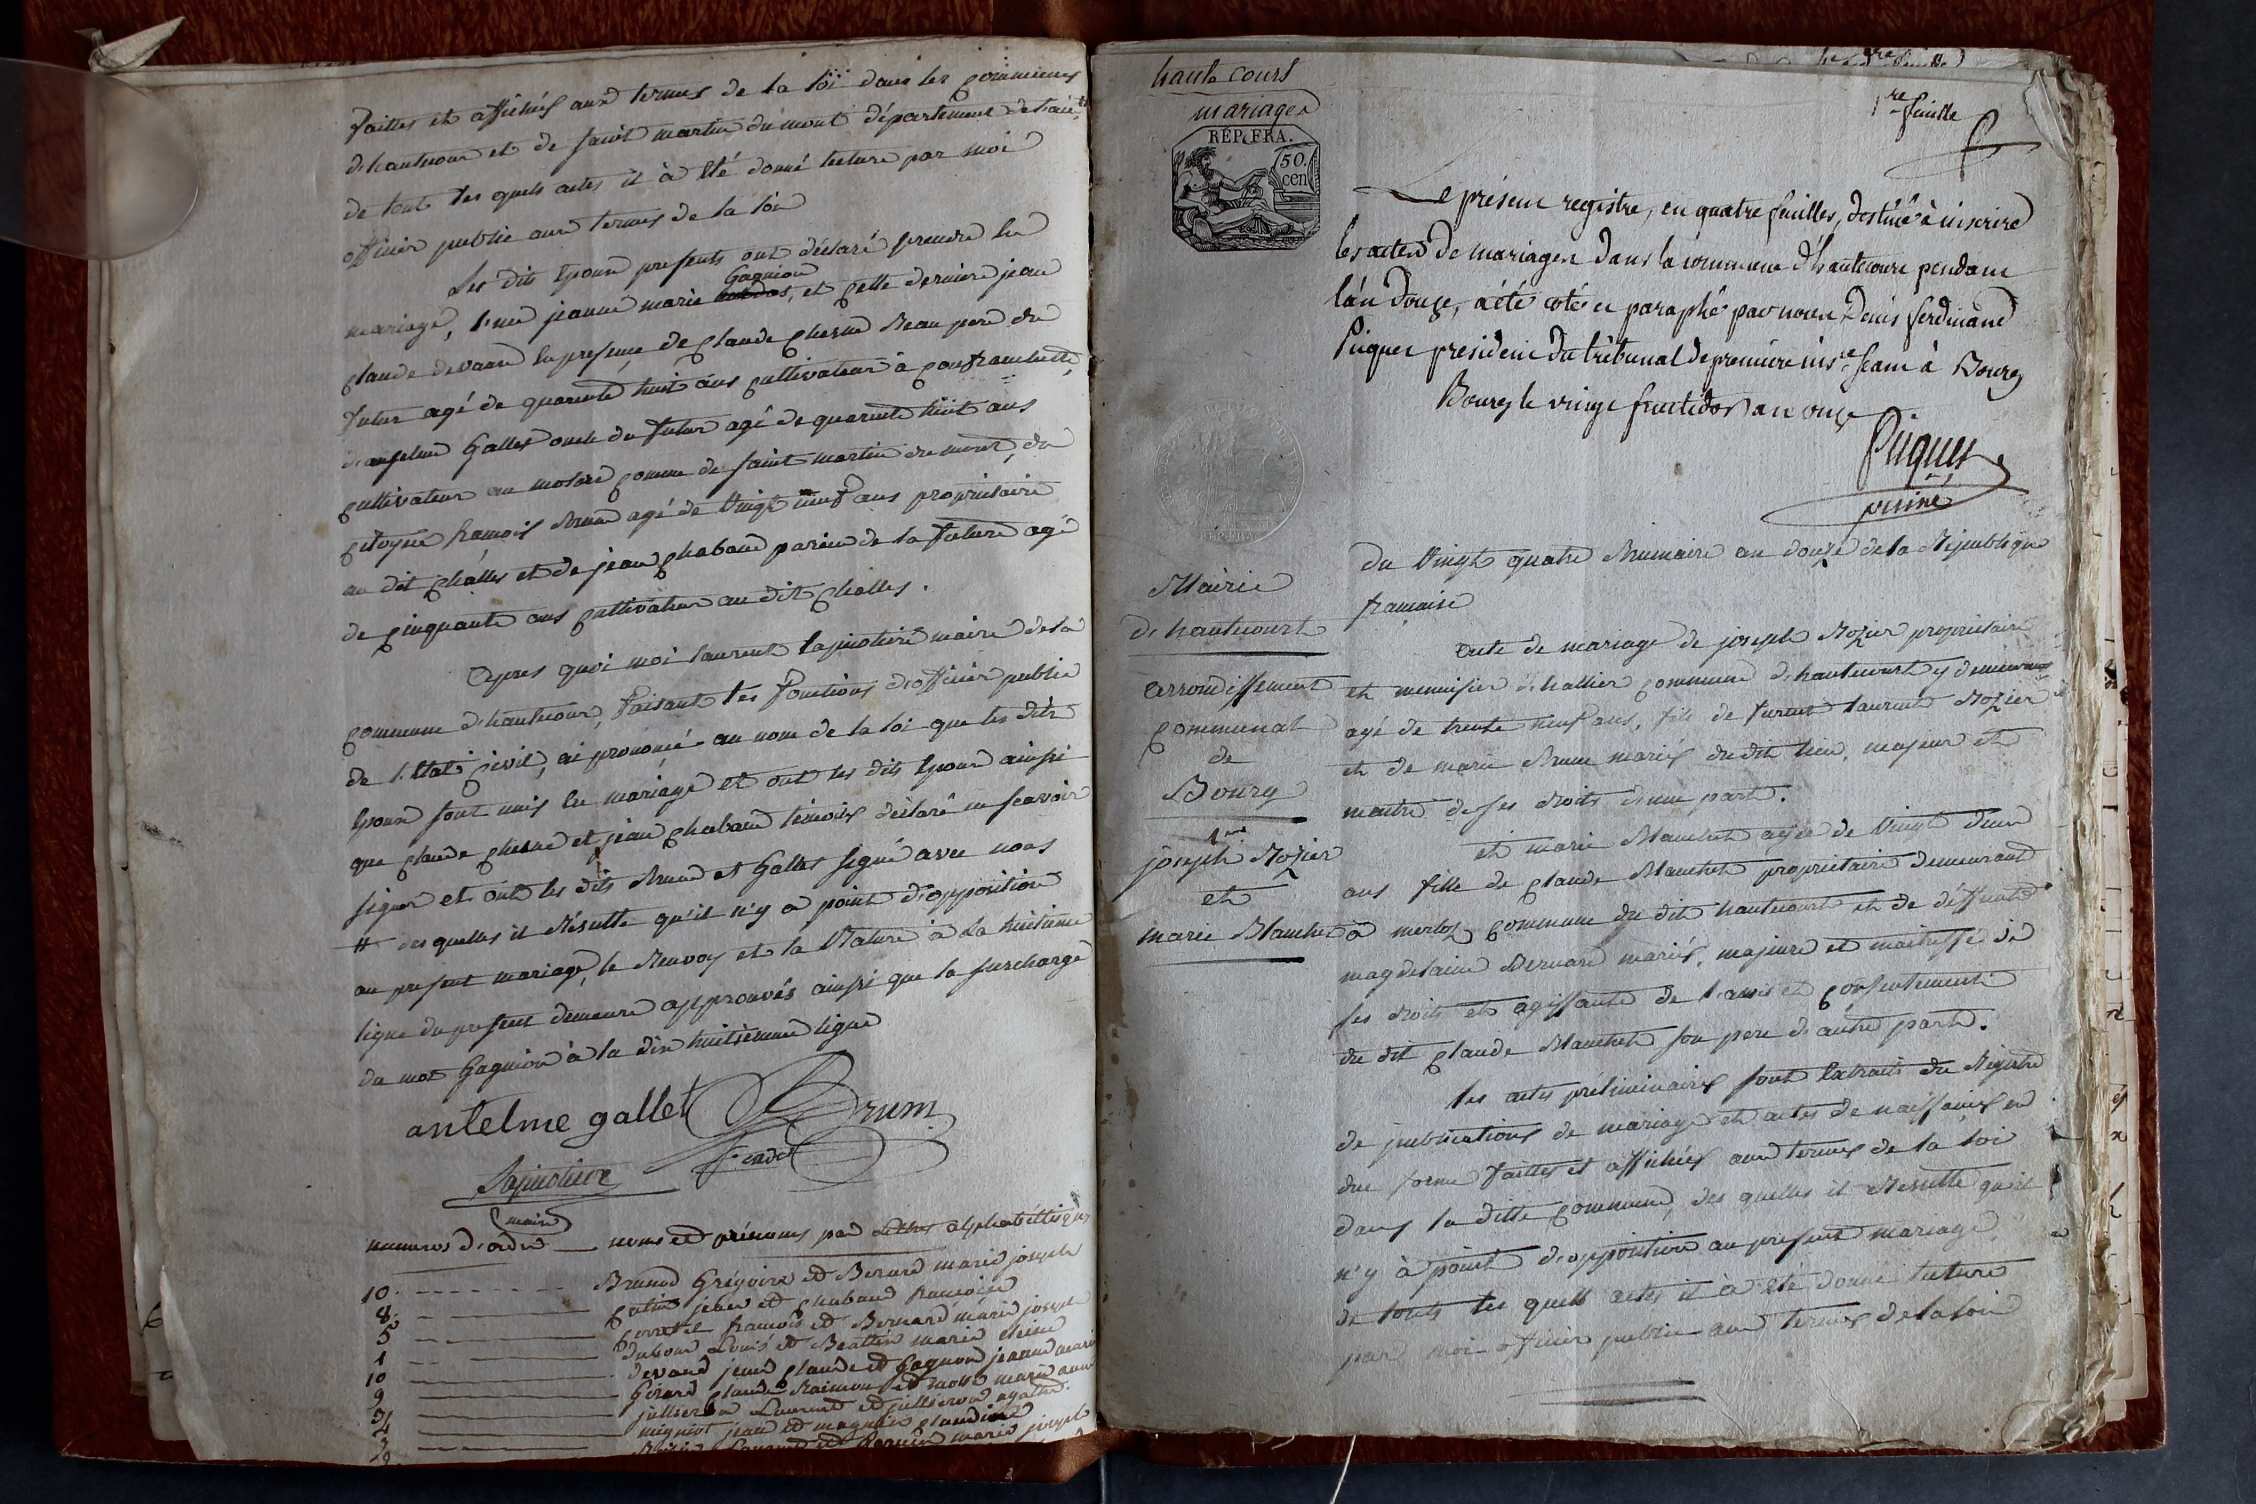 faittes et affichés aux termes de la loi dans les communes
d'hautcour et de saint martin du mont département de l'ain,
de tout les quels actes il à été donné lecture par moi
officier public aux termes de la loi
Les dits époux presents ont déclaré prendre en
mariage, l'un jeanne marie Gagnion, et cette derniere jean
claude devaux en presence de claude chesne Beau pere du
futur agé de quarente huit ans cultivateur à confranchette,
d'anselme Gallet oncle du futur agé de quarente huit ans
cultivateur au molard comune de saint martin du mont, du
citoyen françois Brun agé de vingt neuf ans propriétaire
au dit challes et de jean chaband parain de la future agé
de cinquante ans cultivateur au dit challes.
Apres quoi moi laurent lapinotiere maire de la
commune d'hautcour, faisant les fonctions d'officier public
de l'etat civil, ai prononcé au nom de la loi que les dits
époux sont unis en mariage et ont les dits époux ainsi
que claude chesne et jean chaband témoins déclaré ne scavoir
signer et ont les dits Brun et Gallet signé avec nous
# des quelles il Résulte qu'il n'y a point d'opposition
au present mariage, le Renvoy et la Rature à la huitieme
ligne du present demeure approuvés ainsi que la surcharge
du mot Gagnion à la dix huitieme ligne
antelme gallet Brun
cadet
Lapinotiere
maire
numeros d'ordre — noms et prénoms par Lettres alphabétiques
10 Brunod Grégoire et Bernard marie joseph
8 Catin jean et chaband francoise
5 Corretel francois et Bernard marie joseph
1 dufour Louis et Beattin marie
10 devaud jean claude et Gagnon jeanne marie
9 Girard claude Raimon et molle marie anne
jullieron Laurent et jullieron agathe
mignot jean et magnin claudine
marie joseph
haute court
mariages
RÉP. FRA.
50.
cen
1re feuille
Le présent registre, en quatre feuilles, destiné à inscrire
les actes de mariages dans la commune d'hautecourt pendant
l'an douze, a été coté et paraphé par nous Denis ferdinand
Piquet president du tribunal de premiere ins.ce seant à Bourg
Bourg le vingt fructidor an onze
Piquet
Mairie
d'hautecourt
arrondissement
communal
de
Bourg
joseph Rozier
et
marie Blanchet
du vingt quatre Brumaire an douze de la République
française
acte de mariage de joseph Rozier propriétaire
et menuisier d'hallier commune d'hautecourt y demeurant
agé de trente neuf ans, fils de furent laurent Rozier
et de marie Brun mariés du dit lieu, majeur et
maitre de ses droits d'une part.
et marie Blanchet agée de vingt deux
ans fille de claude Blanchet propriétaire demeurant
à merloz commune du dit hautecourt et de déffunte
magdelaine Bernard mariés, majeure et maitresse de
ses droits et agissante de l'avis et consentement
du dit claude Blanchet son pere d'autre part.
les actes préliminaires sont Extraits du Registre
de publications de mariage et actes de naissances en
due forme faittes et affichés aux termes de la loi
dans la ditte commune, des quelles il Résulte qu'il
n'y à point d'opposition au present mariage,
de touts les quels actes il à été donné lecture
par moi officier public aux termes de la loi